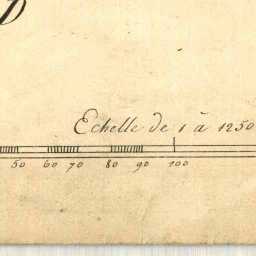 D
Echelle de 1 à 1250
50 60 70 80 90 100